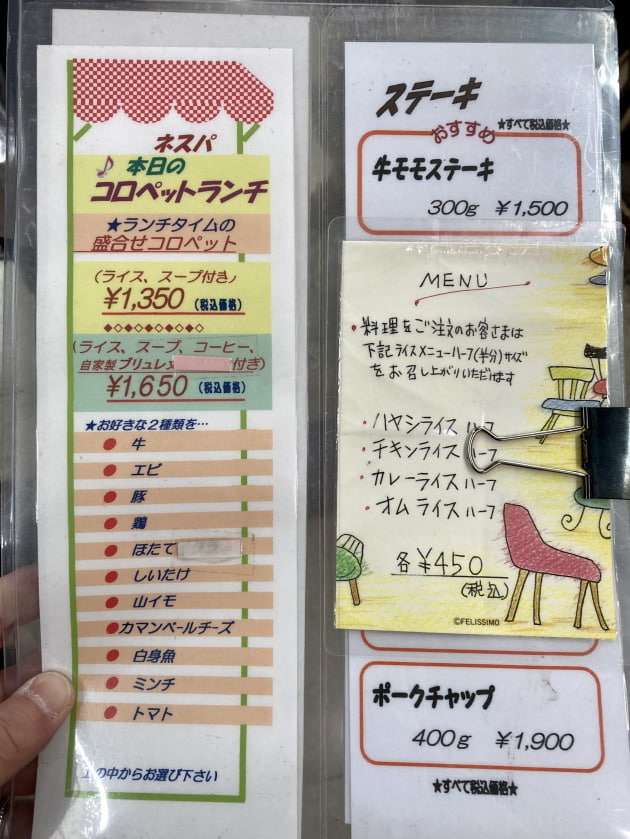 ネスパ
本日の
コロペットランチ
★ランチタイムの
盛合せコロペット
(ライス、スープ付き)
¥1,350 (税込価格)
(ライス、スープ、コーヒー、
自家製 ブリュレ 付き)
¥1,650 (税込価格)
★お好きな2種類を…
● 牛
● エビ
● 豚
● 鶏
● ほたて
● しいたけ
● 山イモ
●カマンベールチーズ
● 白身魚
● ミンチ
● トマト
の中からお選び下さい
ステーキ
★すべて税込価格★
おすすめ
牛モモステーキ
300g ¥1,500
MENU
・料理をご注文のお客さまは
下記ライスメニューハーフ(半分)サイズ
をお召し上がりいただけます
・ハヤシライス ハーフ
・チキンライス ハーフ
・カレーライス ハーフ
・オムライス ハーフ
各¥450
(税込)
©FELISSIMO
ポークチャップ
400g ¥1,900
★すべて税込価格★